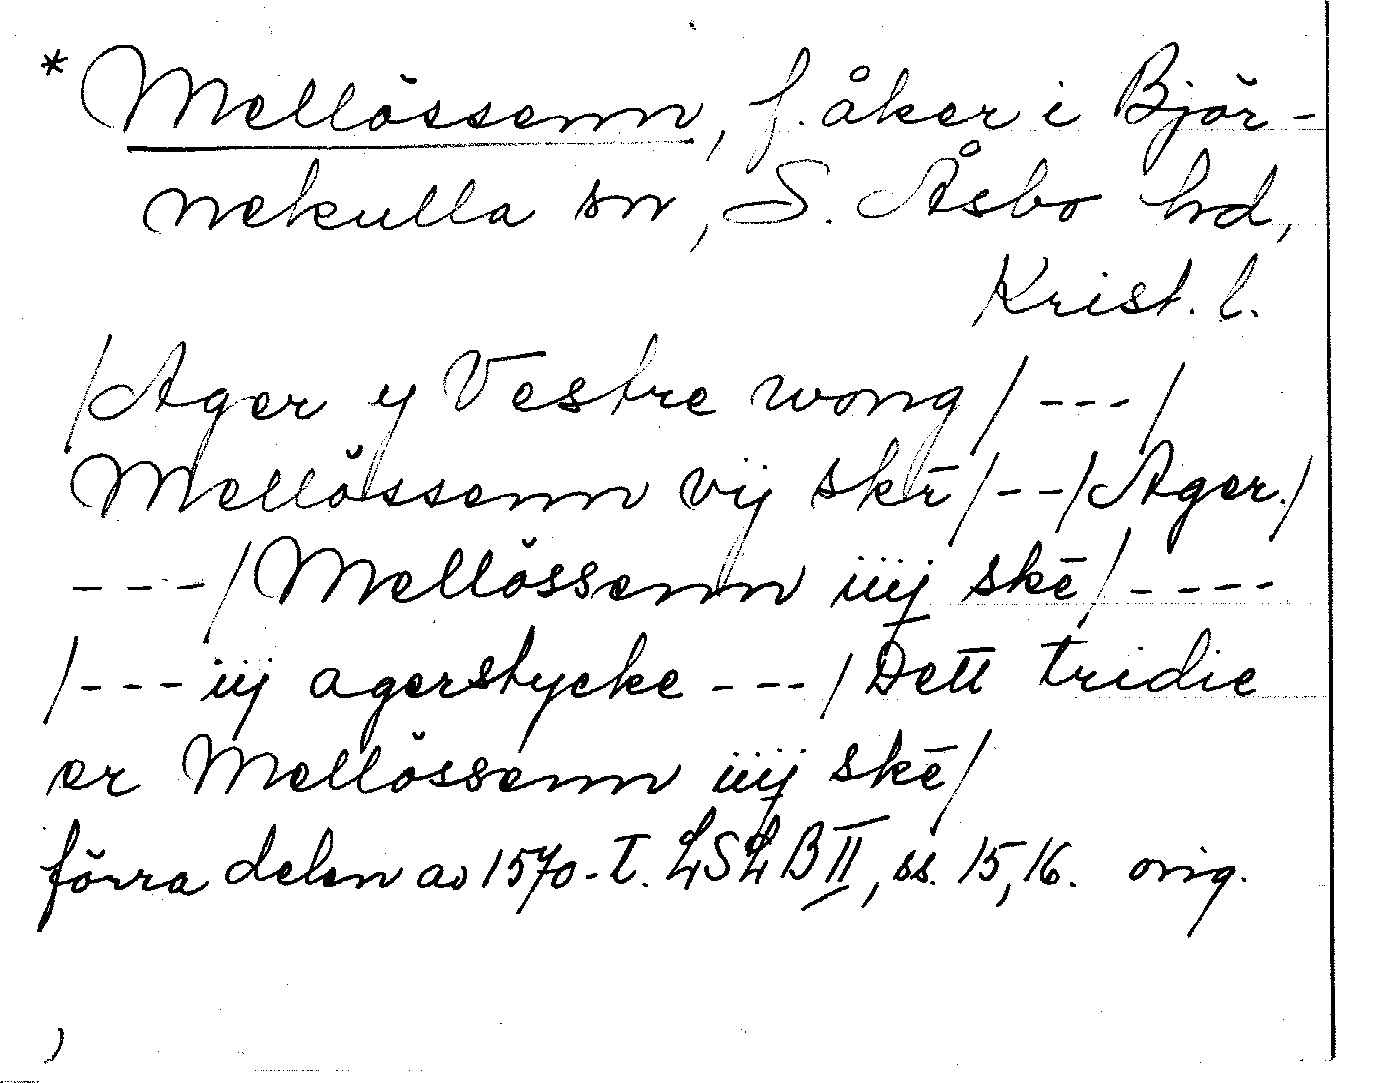 * Mellössenn, f. åker i Björ-
nekulla sn, S. Åsbo hd,
Krist. l.
/Ager y Vestre wong/---/
Mellössenn vij skē/--/Ager./
---/Mellössenn iiij skē/----
/---iij agerstycke---/Dett tridie
er Mellössenn iiij skē/
förra delen av 1570-t. LSLB II, ss. 15, 16. orig.